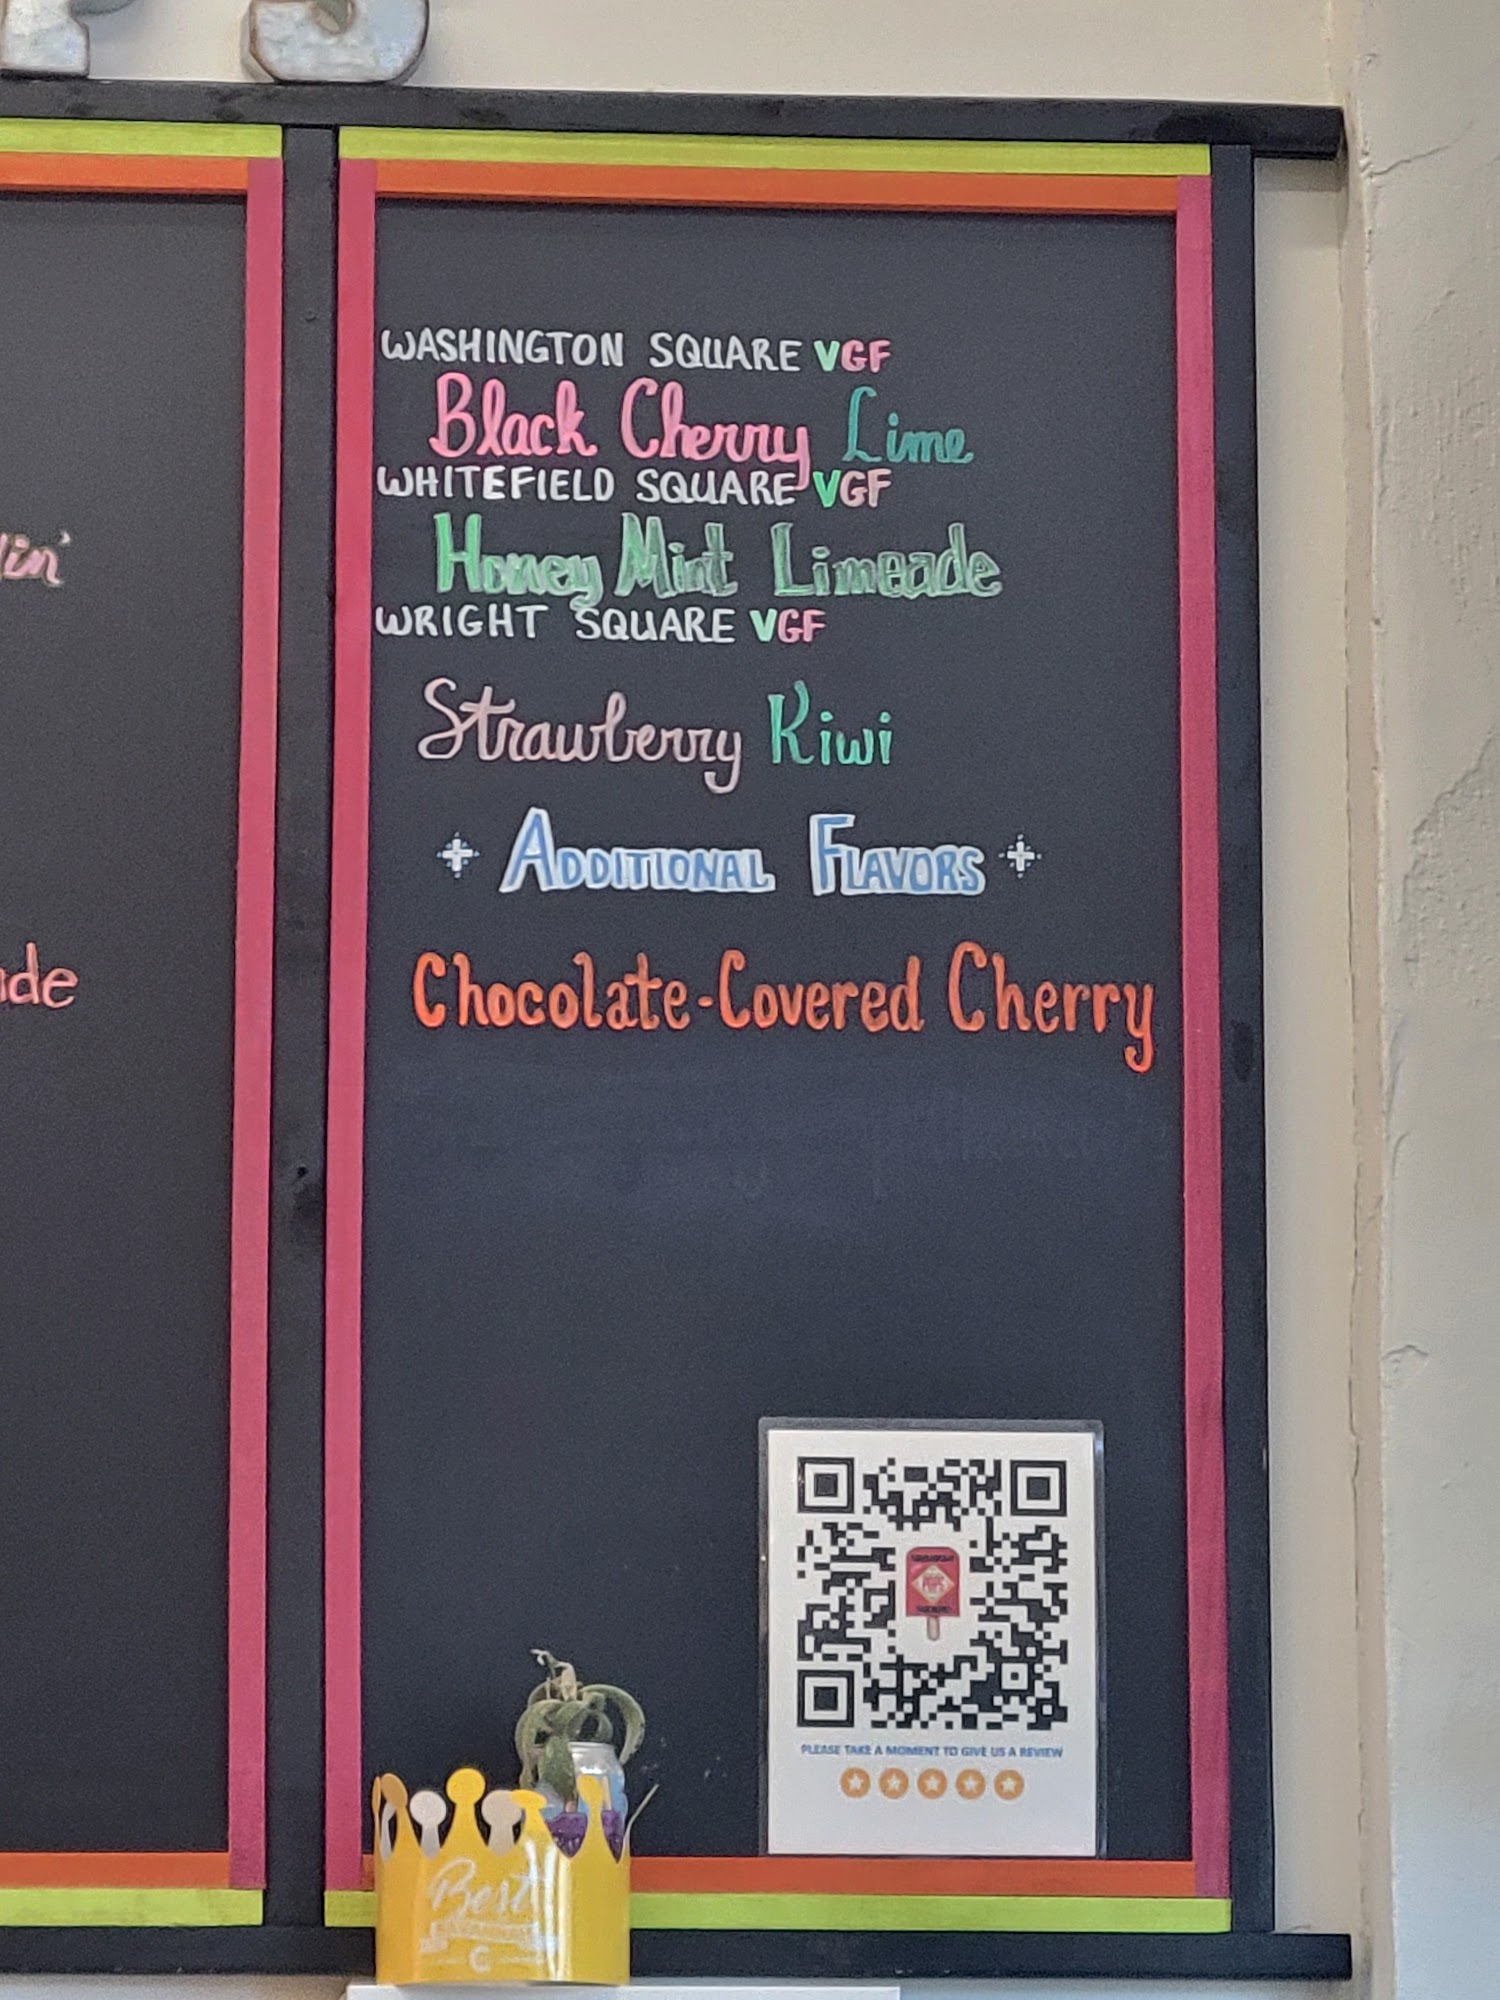 PS
lin'
ade
WASHINGTON SQUARE VGF
Black Cherry Lime
WHITEFIELD SQUARE VGF
Honey Mint Limeade
WRIGHT SQUARE VGF
Strawberry Kiwi
ADDITIONAL FLAVORS
Chocolate-Covered Cherry
POPS
PLEASE TAKE A MOMENT TO GIVE US A REVIEW
Best